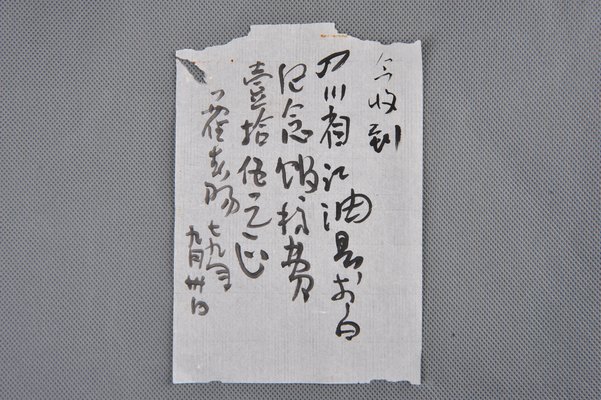 今收到
四川省江油县李白
纪念馆稿费
壹拾伍元正
霍春阳
七九年
九月卅日